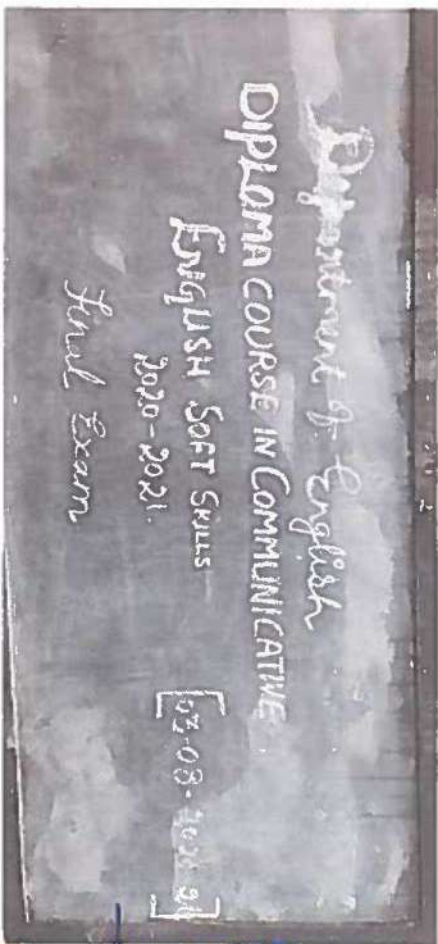 Department of English
DIPLOMA COURSE IN COMMUNICATIVE
ENGLISH SOFT SKILLS
2020-2021.
Final Exam